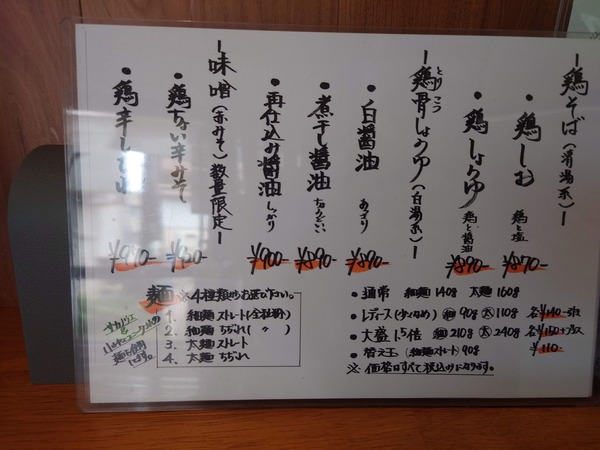 ー鶏そば(清湯系)ー
・鶏しお 鶏と塩 ¥870-
・鶏しょうゆ 鶏と醤油 ¥890-
ー鶏骨しょうゆ(白湯系)ー
とりこつ
・白醤油 あっさり ¥890-
・煮干し醤油 ちょうどいい ¥890-
・再仕込み醤油 しっかり ¥900-
ー味噌(赤みそ)数量限定ー
・鶏ちょい辛みそ
・鶏辛
麺 ※4種類からお選び下さい。
1. 細麺ストレート(全粒粉)
2. 細麺ちぢれ( 〃 )
3. 太麺ストレート
4. 太麺ちぢれ
・通常 細麺140g 太麺160g
・レディース(少なめ) 細110g 太110g
・大盛1.5倍 細210g 太240g 各¥150-プラス
・替え玉(細麺ストレート)90g ¥110-
※価格はすべて税込みになります。